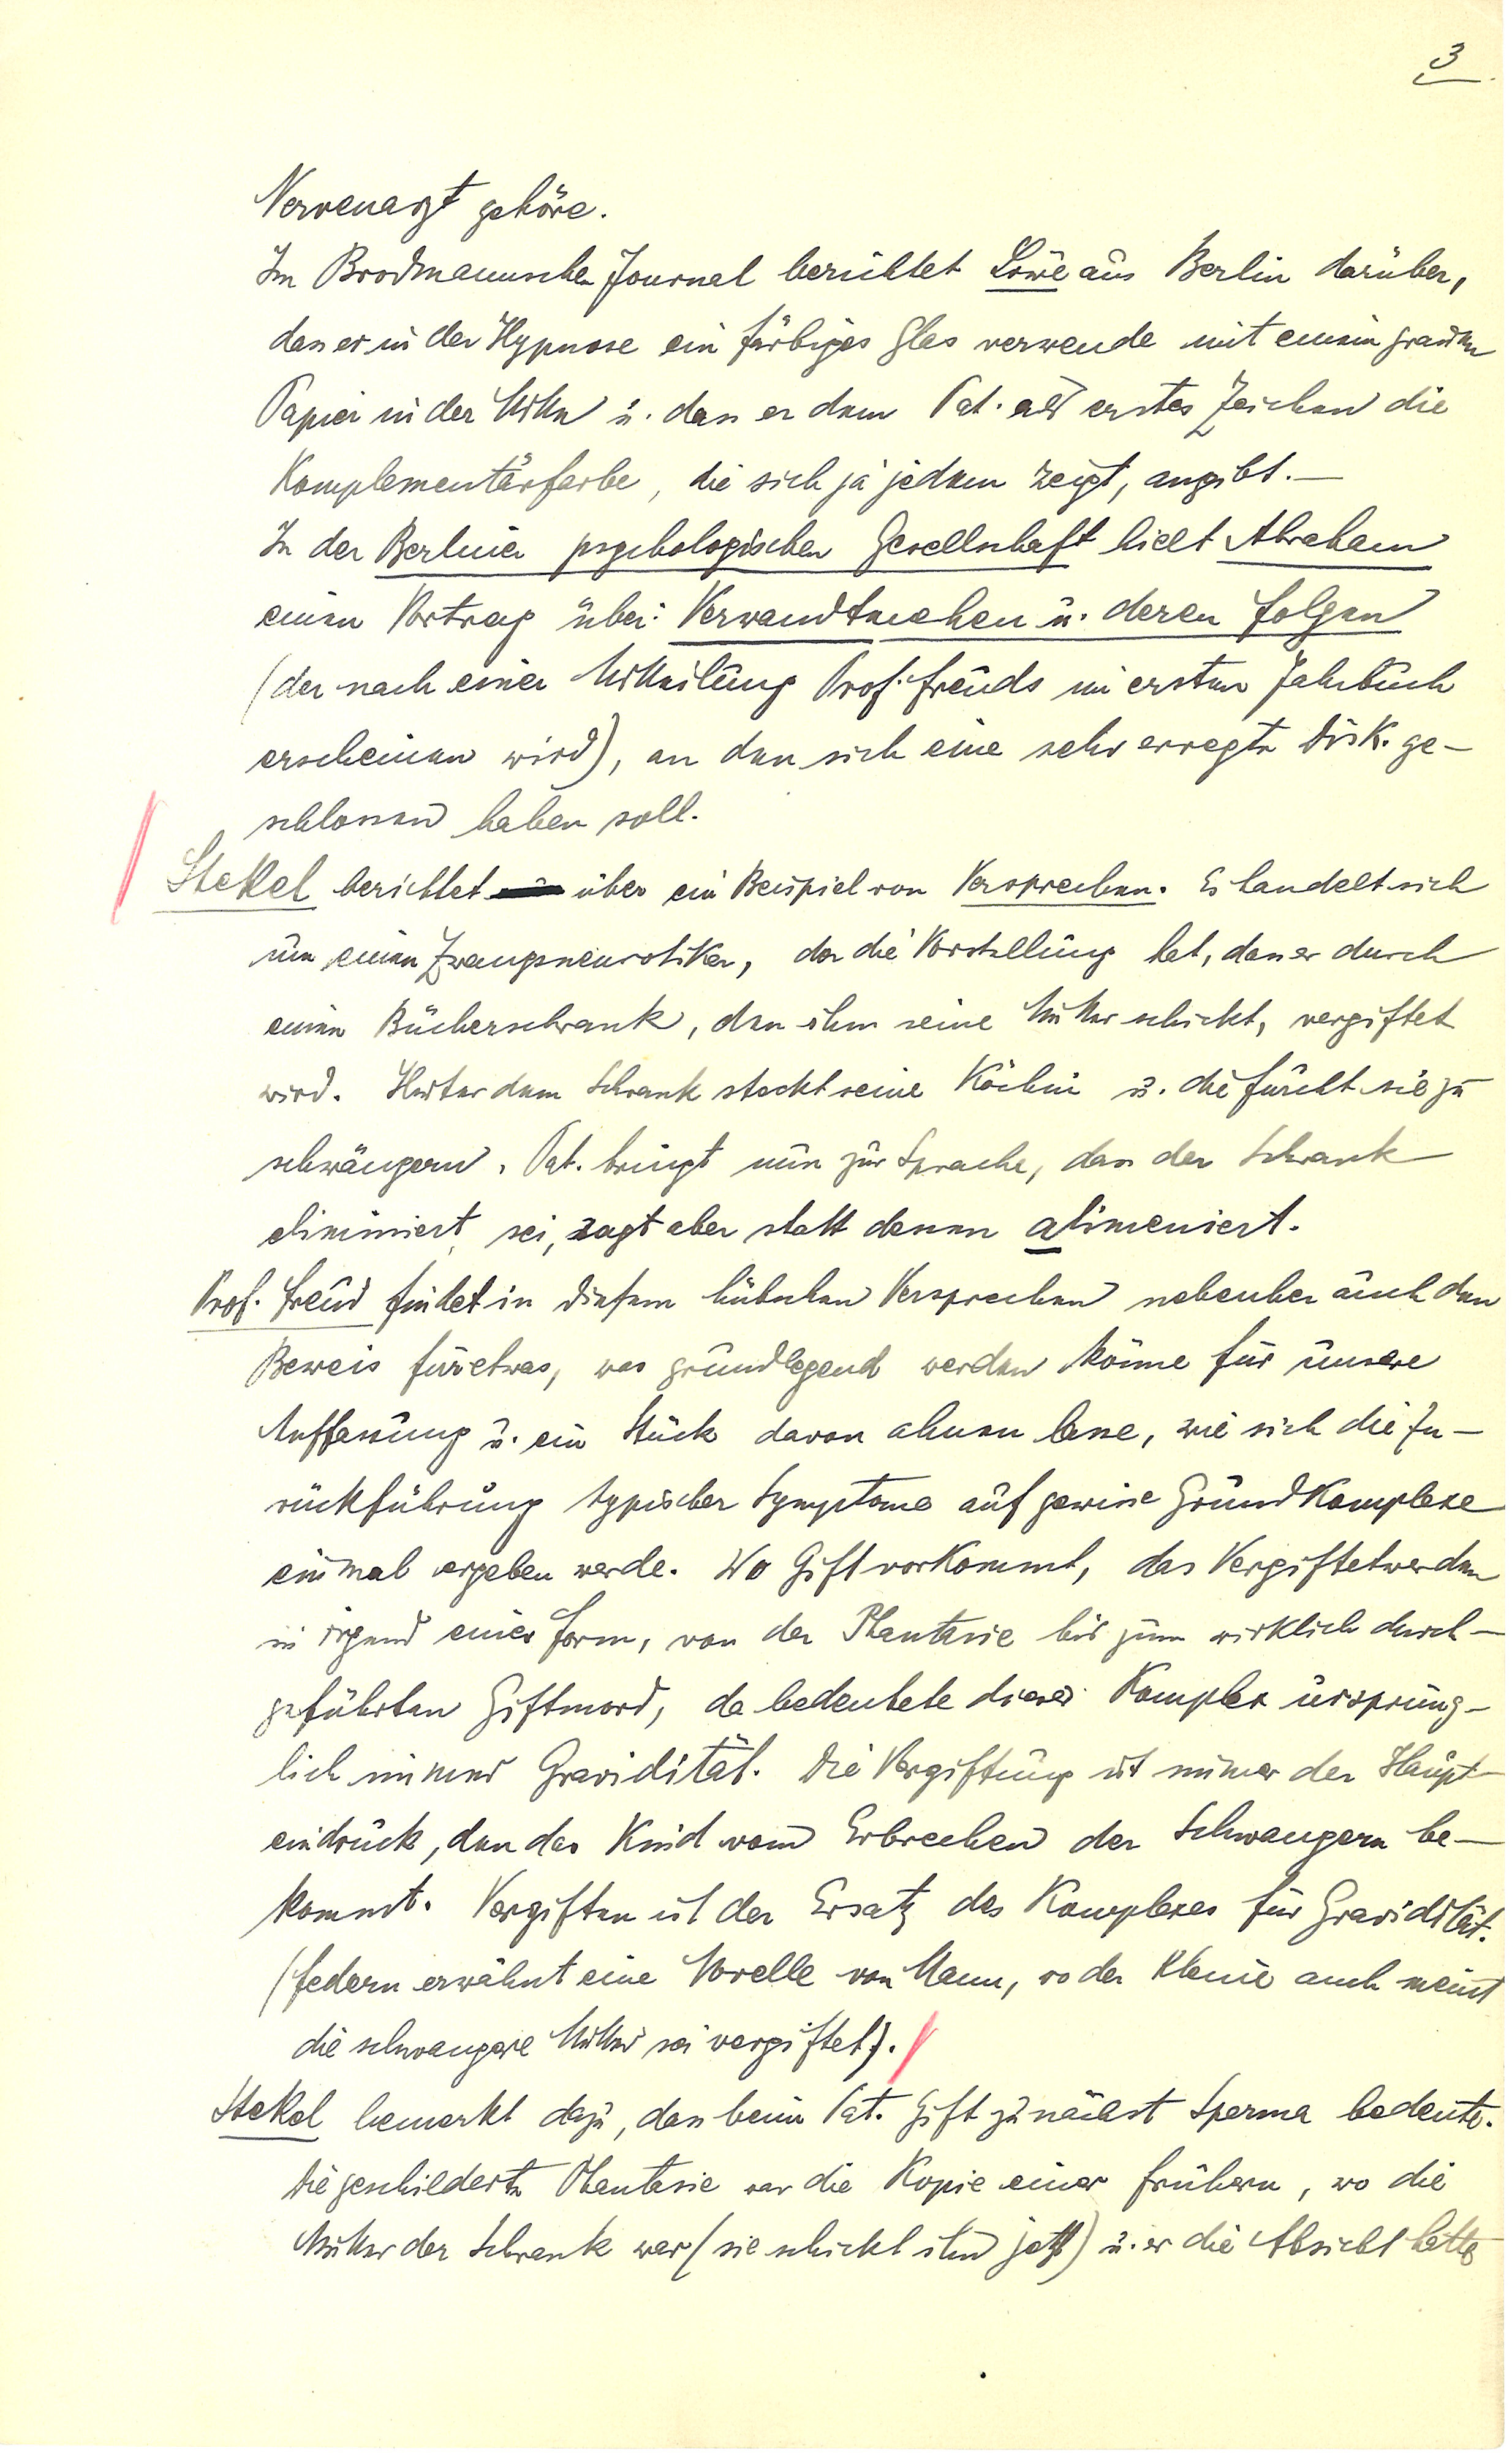 3
Nervenarzt gehöre.
Im Brodmannschen Journal berichtet Löwe aus Berlin darüber,
dass er in der Hypnose ein färbiges Glas verwende mit einem grauen
Papier in der Mitte u. dass er dem Pat. als erstes Zeichen die
Komplementärfarbe, die sich ja jedem zeigt, angibt. —
In der Berliner psychologischen Gesellschaft hielt Abraham
einen Vortrag über: Verwandtenehen u. deren Folgen
(der nach einer Mitteilung Prof. Freuds im ersten Jahrbuch
erscheinen wird), an den sich eine sehr erregte Disk. ge-
schlossen haben soll.
Stekel berichtet über ein Beispiel von Versprechen. Es handelt sich
um einen Zwangsneurotiker, der die Vorstellung hat, dass er durch
einen Bücherschrank, den ihm seine Mutter schickt, vergiftet
wird. Hinter dem Schrank steckt seine Köchin u. die fürcht sie zu
schwängern. Pat. bringt nun zur Sprache, dass der Schrank
eliminiert sei, sagt aber statt dessen alimeniert.
Prof. Freud findet in diesem hübschen Versprechen nebenbei auch den
Beweis für etwas, was grundlegend werden könne für unsere
Auffassung u. ein Stück davon ahnen lasse, wie sich die Zu-
rückführung typischer Symptome auf gewisse Grundkomplexe
einmal ergeben werde. Wo Gift vorkommt, das Vergiftetwerden
in irgend einer Form, von der Phantasie bis zum wirklich durch-
geführten Giftmord, da bedeutete dieser Komplex ursprüng-
lich immer Gravidität. Die Vergiftung ist immer der Haupt-
eindruck, den das Kind vom Erbrechen der Schwangern be-
kommt. Vergiften ist der Ersatz des Komplexes für Gravidität.
(Federn erwähnt eine Novelle von Mann, wo der Kleine auch meint
die schwangere Mutter sei vergiftet).
Stekel bemerkt dazu, dass beim Pat. Gift zunächst Sperma bedeute.
Die geschilderte Phantasie war die Kopie einer frühern, wo die
Mutter der Schrank war (sie schickt ihn jetzt) u. er die Absicht hatte